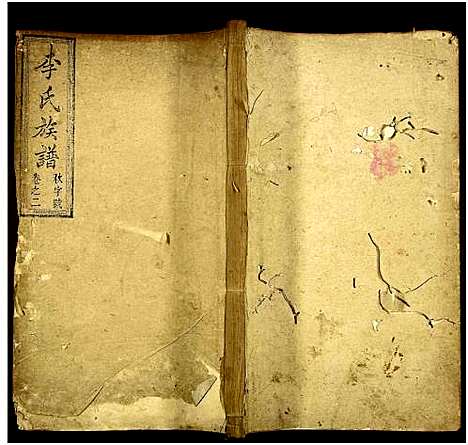 李氏族譜
秋字號
卷之二